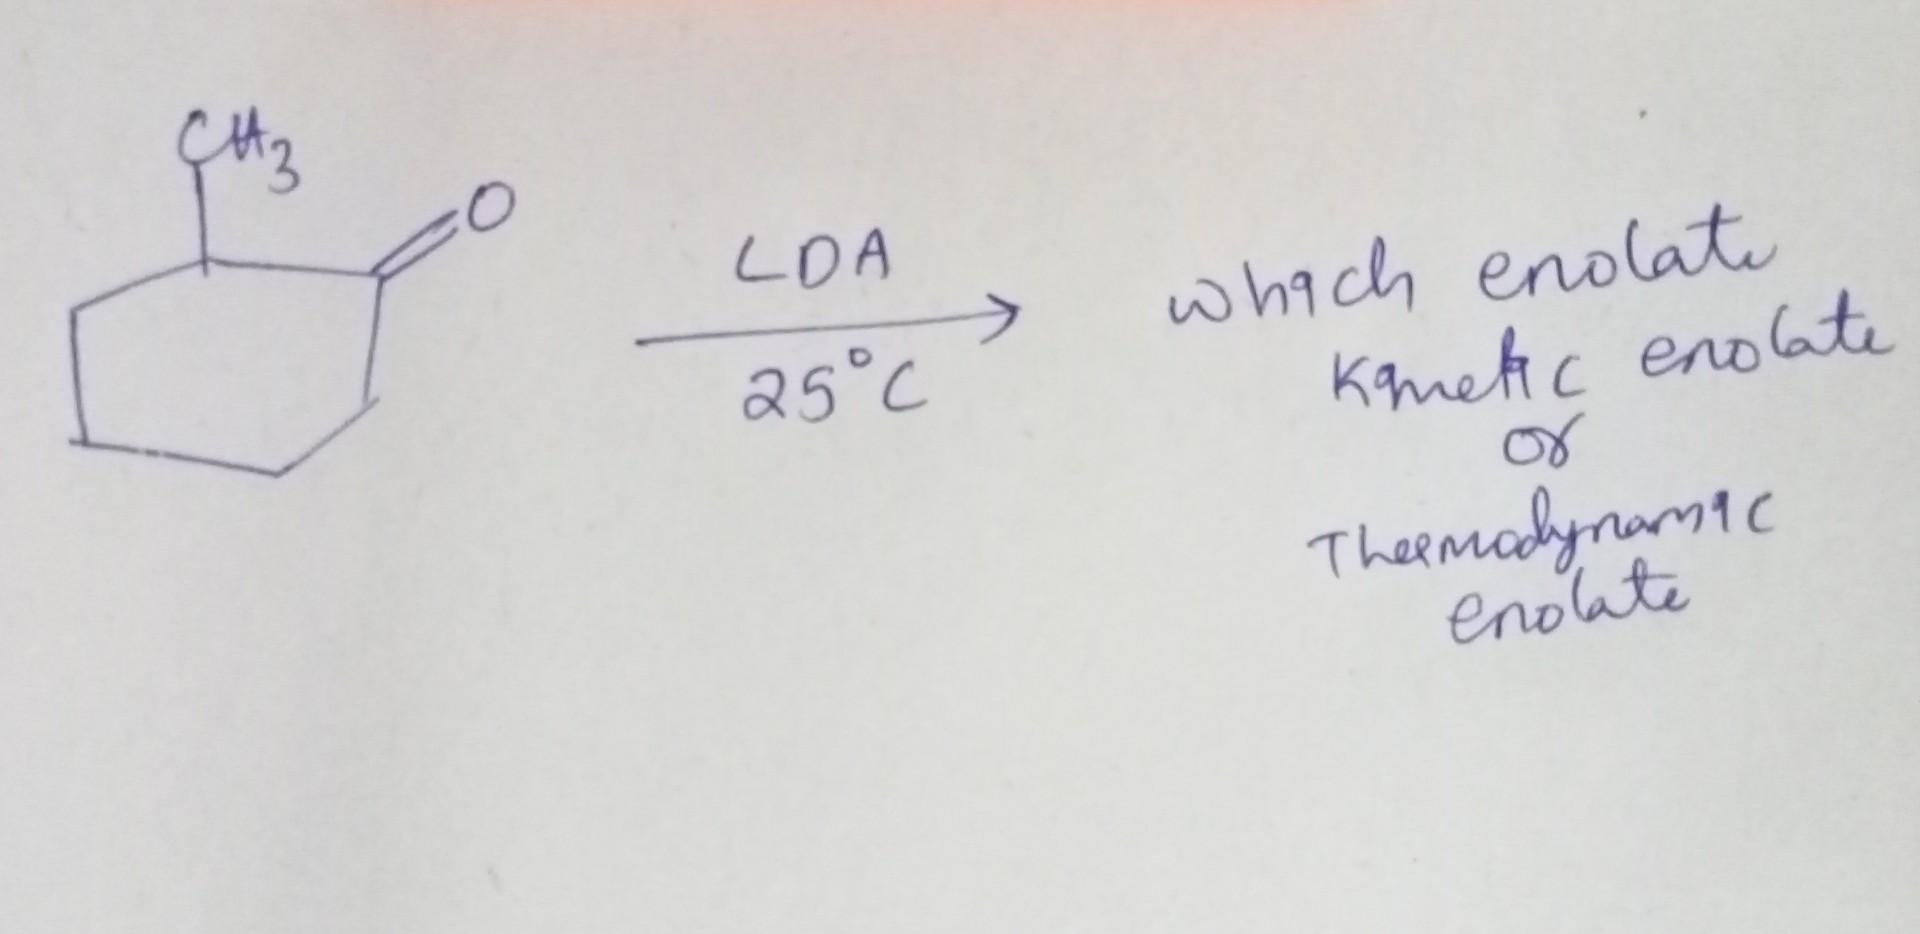 CH3
O
LDA
25°C
which enolate
Kinetic enolate
or
Thermodynamic
enolate